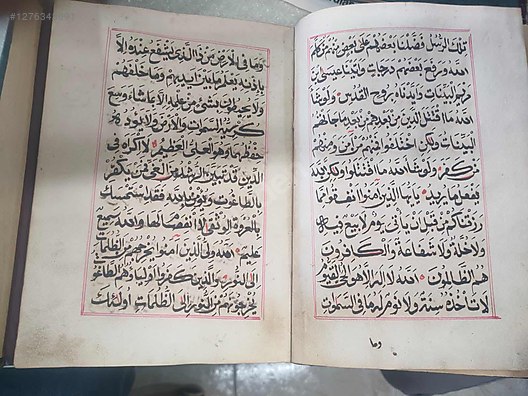 تلك الرسل فضلنا بعضهم على بعض منهم من كلم
الله ورفع بعضهم درجات واتينا عيسى بن
مريم البينات وايدناه بروح القدس ولو شا
الله ما اقتتل الذين من بعدهم من بعد ما جاتهم
البينات ولكن اختلفوا فمنهم من امن ومنهم
من كفر ولو شا الله ما اقتتلوا ولكن الله
يفعل ما يريد يايها الذين امنوا انفقوا مما
رزقناكم من قبل ان ياتي يوم لا بيع فيه
ولا خلة ولا شفاعة والكافرون
هم الظالمون الله لا اله الا هو الحي القيوم
لا تاخذه سنة ولا نوم له ما في السموات
وما
وما في الارض من ذا الذي يشفع عنده الا
باذنه يعلم ما بين ايديهم وما خلفهم
ولا يحيطون بشي من علمه الا بما شا وسع
كرسيه السموات والارض ولا يوده
حفظهما وهو العلي العظيم لا اكراه في
الدين قد تبين الرشد من الغي فمن يكفر
بالطاغوت ويومن بالله فقد استمسك
بالعروة الوثقى لا انفصام لها والله سميع
عليم الله ولي الذين امنوا يخرجهم من الظلمات
الى النور والذين كفروا اولياوهم الطاغوت
يخرجونهم من النور الى الظلمات اولئك